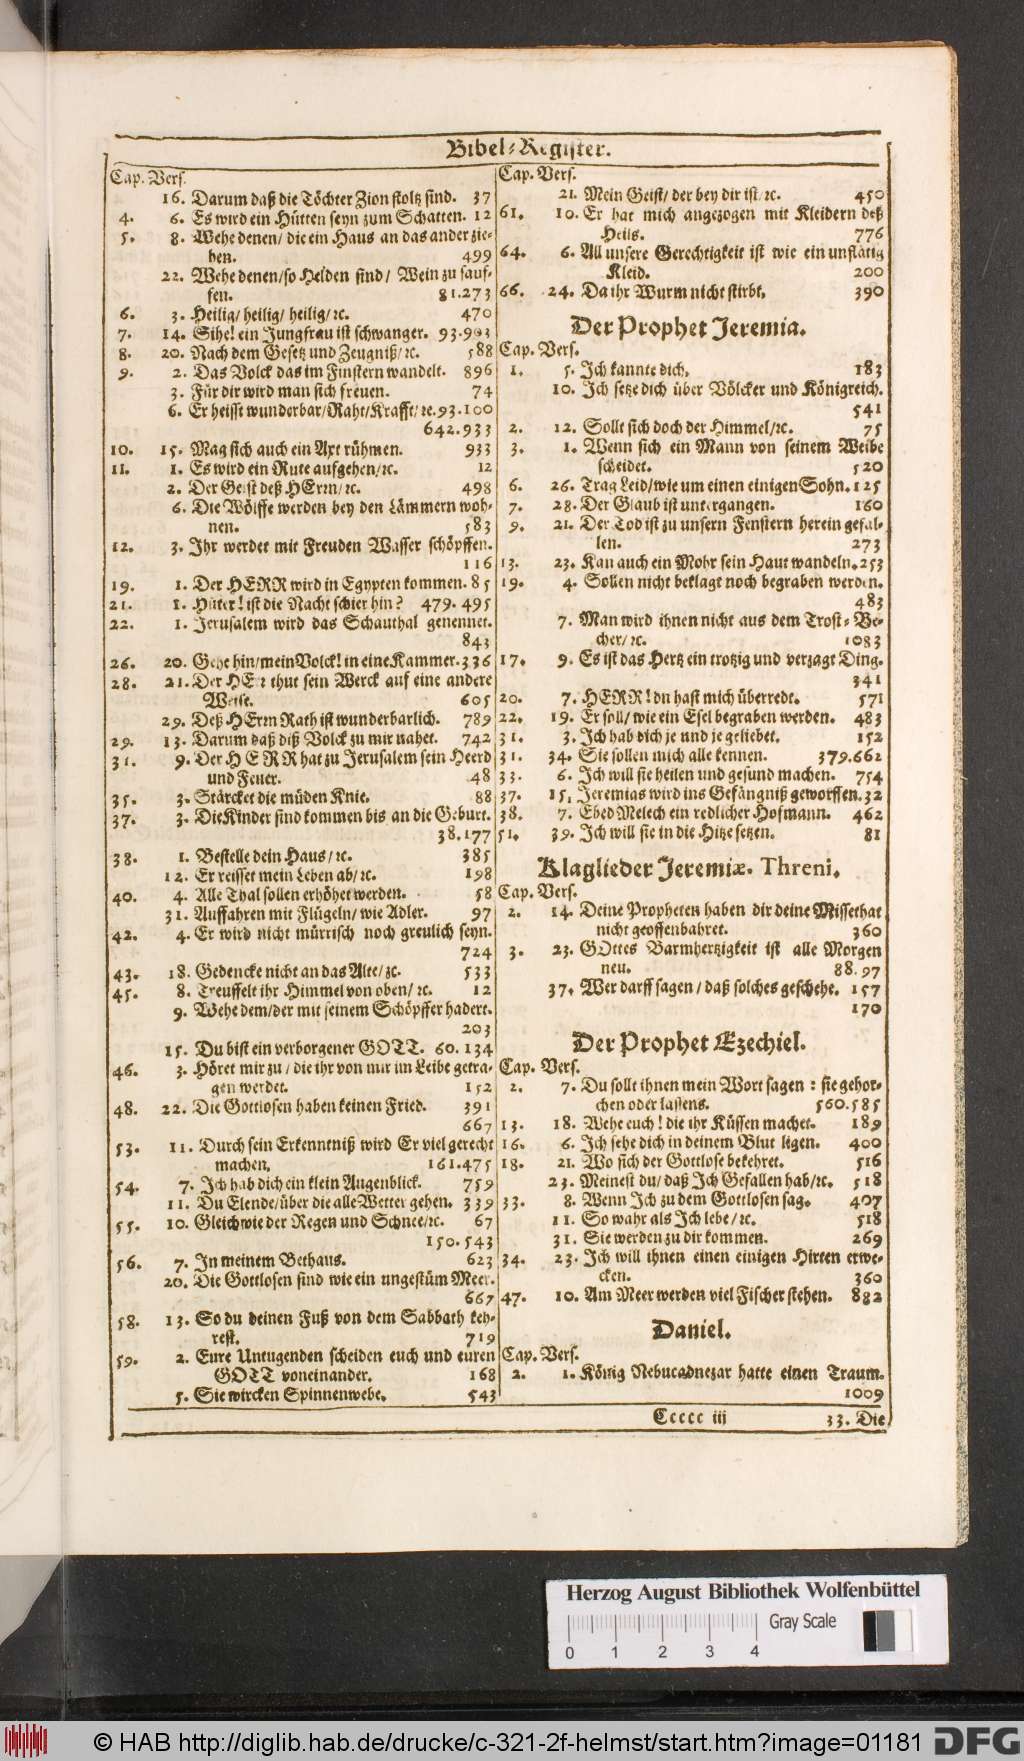 Bibel-Register.
Cap. Vers.
16. Darum daß die Töchter Zion stoltz sind. 37
4. 6. Es wird ein Hütten seyn zum Schatten. 12
5. 8. Wehe denen/ die ein Haus an das ander zie-
hen. 499
22. Wehe denen/ so Helden sind/ Wein zu sauf-
fen. 81.273
6. 3. Heilig/ heilig/ heilig/ ꝛc. 470
7. 14. Sihe! ein Jungfrau ist schwanger. 93.903
8. 20. Nach dem Gesetz und Zeugniß/ ꝛc. 588
9. 2. Das Volck das im Finstern wandelt. 896
3. Für dir wird man sich freuen. 74
6. Er heisst wunderbar/ Raht/ Krafft/ ꝛc. 93.100
642.933
10. 15. Mag sich auch ein Axt rühmen. 933
11. 1. Es wird ein Rute aufgehen/ ꝛc. 12
2. Der Geist deß HErrn/ ꝛc. 498
6. Die Wölffe werden bey den Lämmern woh-
nen. 583
12. 3. Ihr werdet mit Freuden Wasser schöpffen.
116
19. 1. Der HERR wird in Egypten kommen. 85
21. 1. Hüter! ist die Nacht schier hin? 479. 495
22. 1. Jerusalem wird das Schauthal genennet.
843
26. 20. Gehe hin/ mein Volck! in eine Kammer. 336
28. 21. Der HErr thut sein Werck auf eine andere
Weise. 605
29. Deß HErrn Rath ist wunderbarlich. 789
29. 13. Darum daß diß Volck zu mir nahet. 742
31. 9. Der HERR hat zu Jerusalem sein Heerd
und Feuer. 48
35. 3. Stärcket die müden Knie. 88
37. 3. Die Kinder sind kommen bis an die Geburt.
38.177
38. 1. Bestelle dein Haus/ ꝛc. 385
12. Er reisset mein Leben ab/ ꝛc. 198
40. 4. Alle Thal sollen erhöhet werden. 58
31. Auffahren mit Flügeln/ wie Adler. 97
42. 4. Er wird nicht mürrisch noch greulich seyn.
724
43. 18. Gedencke nicht an das Alte/ ꝛc. 533
45. 8. Treuffelt ihr Himmel von oben/ ꝛc. 12
9. Wehe dem/ der mit seinem Schöpffer hadert.
203
15. Du bist ein verborgener GOTT. 60. 134
46. 3. Höret mir zu/ die ihr von mir im Leibe getra-
gen werdet. 152
48. 22. Die Gottlosen haben keinen Fried. 391
667
53. 11. Durch sein Erkenntniß wird Er viel gerecht
machen. 161.475
54. 7. Ich hab dich ein klein Augenblick. 759
11. Du Elende/ über die alle Wetter gehen. 339
55. 10. Gleichwie der Regen und Schnee/ ꝛc. 67
150.543
56. 7. In meinem Bethaus. 623
20. Die Gottlosen sind wie ein ungestüm Meer.
667
58. 13. So du deinen Fuß von dem Sabbath keh-
rest. 719
59. 2. Eure Untugenden scheiden euch und euren
GOTT voneinander. 168
5. Sie wircken Spinnenwebe. 543
Cap. Vers.
21. Mein Geist/ der bey dir ist/ ꝛc. 450
61. 10. Er hat mich angezogen mit Kleidern deß
Heils. 776
64. 6. All unsere Gerechtigkeit ist wie ein unflätig
Kleid. 200
66. 24. Da ihr Wurm nicht stirbt. 390
Der Prophet Jeremia.
Cap. Vers.
1. 5. Ich kannte dich. 183
10. Ich setze dich über Völcker und Königreich.
541
2. 12. Sollt sich doch der Himmel/ ꝛc. 75
3. 1. Wenn sich ein Mann von seinem Weibe
scheidet. 520
6. 26. Trag Leid/ wie um einen einigen Sohn. 125
7. 28. Der Glaub ist untergangen. 160
9. 21. Der Tod ist zu unsern Fenstern herein gefal-
len. 273
13. 23. Kan auch ein Mohr sein Haut wandeln. 253
19. 4. Sollen nicht beklagt noch begraben werden.
483
7. Man wird ihnen nicht aus dem Trost-Be-
cher/ ꝛc. 1083
17. 9. Es ist das Hertz ein trotzig und verzagt Ding.
341
20. 7. HERR! du hast mich überredt. 571
22. 19. Er soll/ wie ein Esel begraben werden. 483
31. 3. Ich hab dich je und je geliebet. 152
31. 34. Sie sollen mich alle kennen. 379.662
33. 6. Ich will sie heilen und gesund machen. 754
37. 15. Jeremias wird ins Gefängniß geworffen. 32
38. 7. Ebed Melech ein redlicher Hofmann. 462
51. 39. Ich will sie in die Hitze setzen. 81
Klaglieder Jeremiæ. Threni.
Cap. Vers.
2. 14. Deine Propheten haben dir deine Missethat
nicht geoffenbahret. 360
3. 23. GOttes Barmhertzigkeit ist alle Morgen
neu. 88.97
37. Wer darff sagen/ daß solches geschehe. 157
170
Der Prophet Ezechiel.
Cap. Vers.
2. 7. Du sollt ihnen mein Wort sagen: sie gehor-
chen oder lassens. 560.585
13. 18. Wehe euch! die ihr Küssen machet. 189
16. 6. Ich sehe dich in deinem Blut ligen. 400
18. 21. Wo sich der Gottlose bekehret. 516
23. Meinest du/ daß Ich Gefallen hab/ ꝛc. 518
33. 8. Wenn Ich zu dem Gottlosen sag. 407
11. So wahr als Ich lebe/ ꝛc. 518
31. Sie werden zu dir kommen. 269
34. 23. Ich will ihnen einen einigen Hirten erwe-
cken. 360
47. 10. Am Meer werden viel Fischer stehen. 882
Daniel.
Cap. Vers.
2. 1. König Nebucadnezar hatte einen Traum.
1009
Ccccc iij 33. Die
Herzog August Bibliothek Wolfenbüttel
Gray Scale
0 1 2 3 4
© HAB http://diglib.hab.de/drucke/c-321-2f-helmst/start.htm?image=01181 DFG